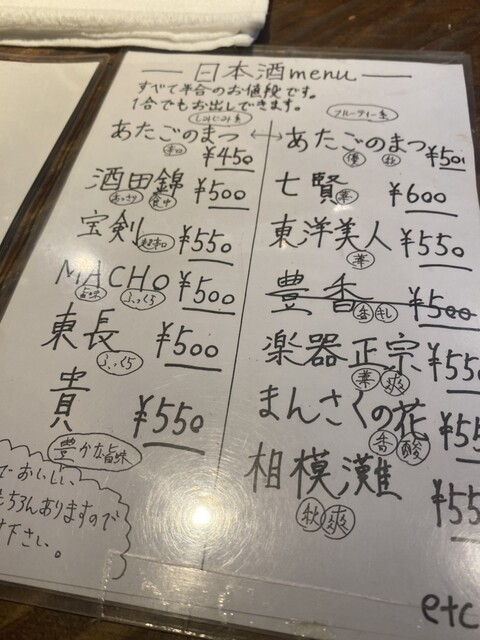 日本酒menu
すべて半合のお値段です。
1合でもお出しできます。
しみじみ系
あたごのまつ
¥450
酒田錦 ¥500
あっさり 食中
宝剣 ¥550
超和
MACHO ¥500
旨味 ふっくら
東長 ¥500
ふっくら
貴 ¥550
豊かな旨味
でおいしい
ちろんありますので
下さい。
フルーティー系
あたごのまつ
¥50
七賢 ¥600
華
東洋美人 ¥550
華
豊香 ¥500
香 キレ
楽器正宗 ¥55
華 爽
まんさくの花 ¥55
香 酸
相模灘 ¥55
秋 爽
etc